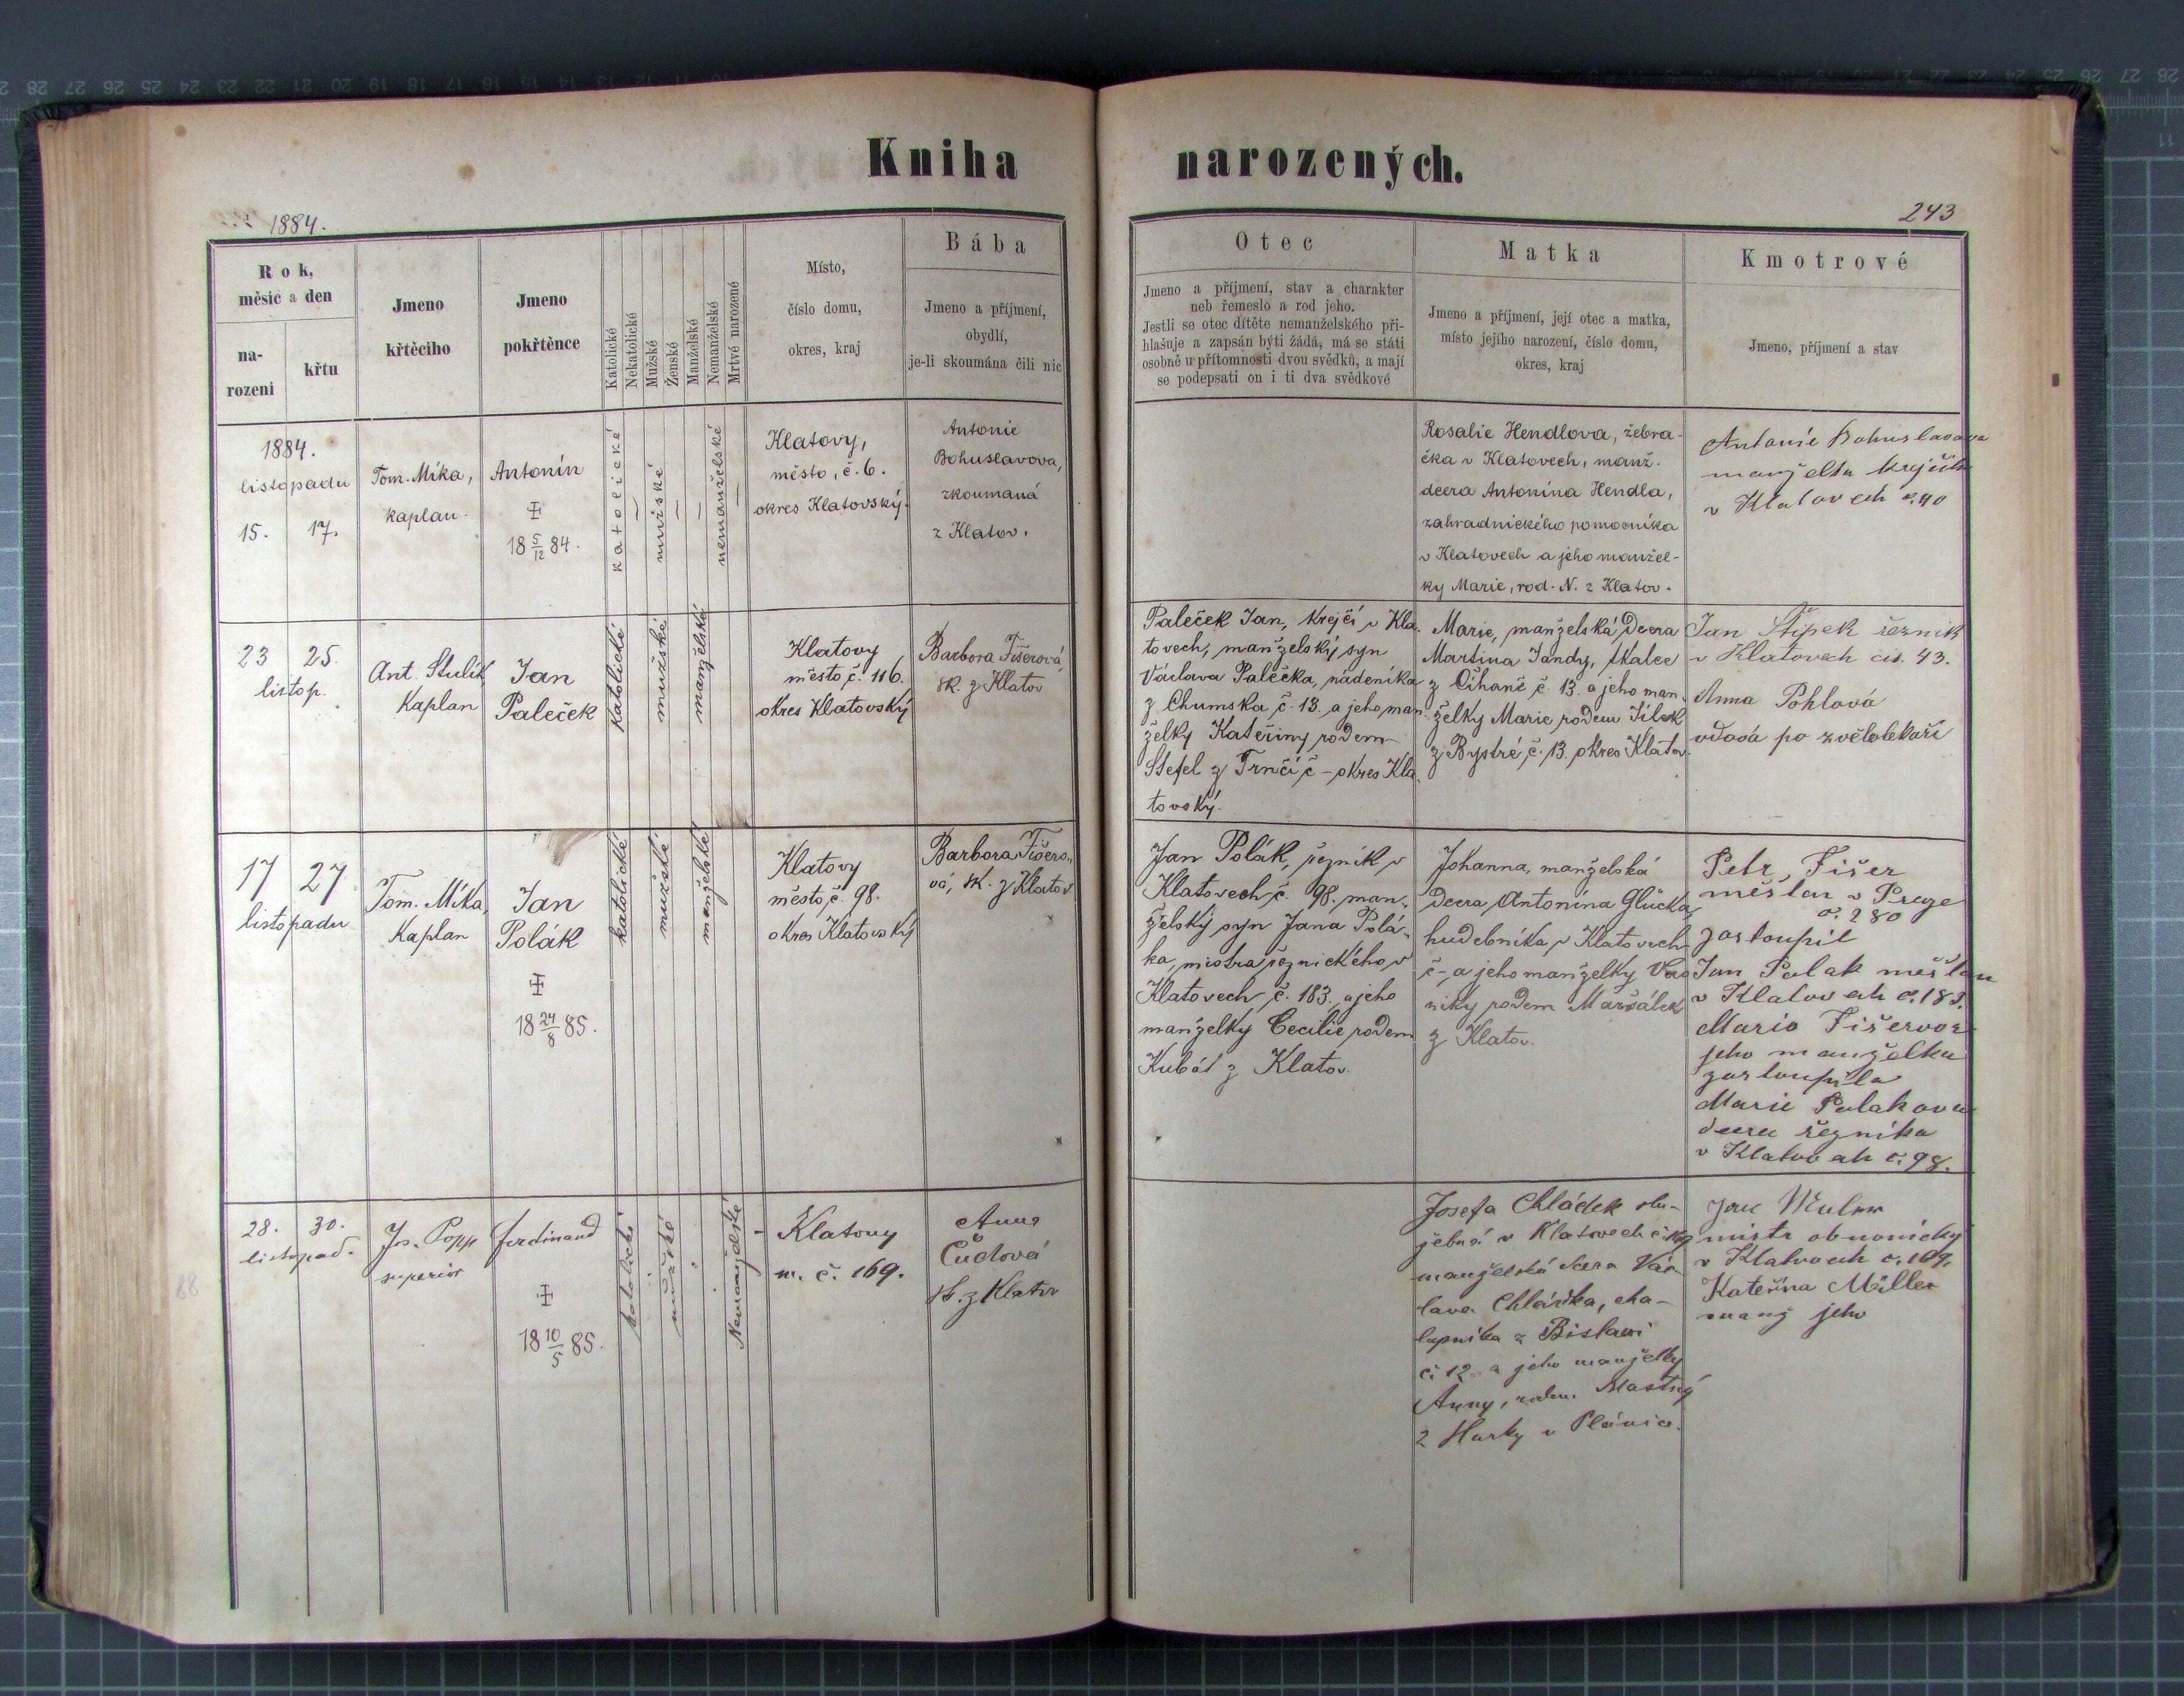 Kniha narozených.
1884.
243
Rok,
měsíc a den
na-
rozeni
křtu
Jmeno
křtěcího
Jmeno
pokřtěnce
Katolické
Nekatolické
Mužské
Ženské
Manželské
Nemanželské
Mrtvé narozené
Místo,
číslo domu,
okres, kraj
Bába
Jmeno a příjmení,
obydlí,
je-li skoumána čili nic
Otec
Jmeno a příjmení, stav a charakter
neb řemeslo a rod jeho.
Jestli se otec dítěte nemanželského při-
hlašuje a zapsán býti žádá, má se státi
osobně u přítomnosti dvou svědků, a mají
se podepsati on i ti dva svědkové
Matka
Jmeno a příjmení, její otec a matka,
místo jejího narození, číslo domu,
okres, kraj
Kmotrové
Jmeno, příjmení a stav
1884.
listopadu
15. 17.
Tom. Míka,
kaplan.
Antonín
18 5/12 84.
katolické
mužské
nemanželské
Klatovy,
město, č. 6.
okres Klatovský.
Antonie
Bohuslavova,
zkoumaná
z Klatov.
Rosalie Hendlova, žebra-
čka v Klatovech, manž.
dcera Antonína Hendla,
zahradnického pomocníka
v Klatovech a jeho manžel-
ky Marie, rod. N. z Klatov.
Antonie Bohuslavova
manželka krejčího
v Klatovech č. 40
23 25.
listop.
Ant. Stulík
Kaplan
Jan
Paleček
katolické
mužské
manželské
Klatovy
město č. 116.
okres Klatovský
Barbora Fišerová,
sk. z Klatov
Paleček Jan, krejčí v Kla-
tovech, manželský syn
Václava Palečka, nádeníka
z Chumska č. 13. a jeho man-
želky Kateřiny rodem
Štefel z Trnčí č – okres Kla-
tovský.
Marie, manželská dcera
Martina Jandy, tkalce
z Číhaně č. 13. a jeho man-
želky Marie rodem Jílek
z Bystré, č. 13. okres Klatov.
Jan Štipek řezník
v Klatovech čís. 43.
Anna Pohlová
vdová po zvěrolekaři
17 27.
listopadu
Tom. Míka,
Kaplan
Jan
Polák
18 24/8 85.
katolické
mužské
manželské
Klatovy
město, č. 98.
okres Klatovský
Barbora Fišero-
vá, sk. z Klatov
Jan Polák, řezník v
Klatovech č. 98. man-
želský syn Jana Polá-
ka, mistra řeznického v
Klatovech, č. 183. a jeho
manželky Cecilie rodem
Kubát z Klatov.
Johanna, manželská
dcera Antonína Glücka,
hudebníka v Klatovech
č – a jeho manželky Vero
niky rodem Maršálek
z Klatov.
Petr Fišer
měšťan v Praze
č. 280
zastoupil
Jan Polak měšťan
v Klatovech č. 183.
Marie Fišerova
jeho manželka
zastoupila
Marie Polakova
dcera řezníka
v Klatovech č. 98.
28. 30.
listopad.
Jos. Popp
superior
Ferdinand
18 10/5 85.
katolické
mužské
Nemanželské
Klatovy
m. č. 169.
Anna
Čudová
sk. z Klatov
Josefa Chládek slu-
žebná v Klatovech č. 169
manželská dcera Vác-
lava Chládka, cha-
lupníka z
č. 12 a jeho manželky
Anny, rodem. Mastný
z Hurky u Plánice.
Jan
mistr obuvnický
v Klatovech č. 169.
Kateřina Müller
manž jeho
88